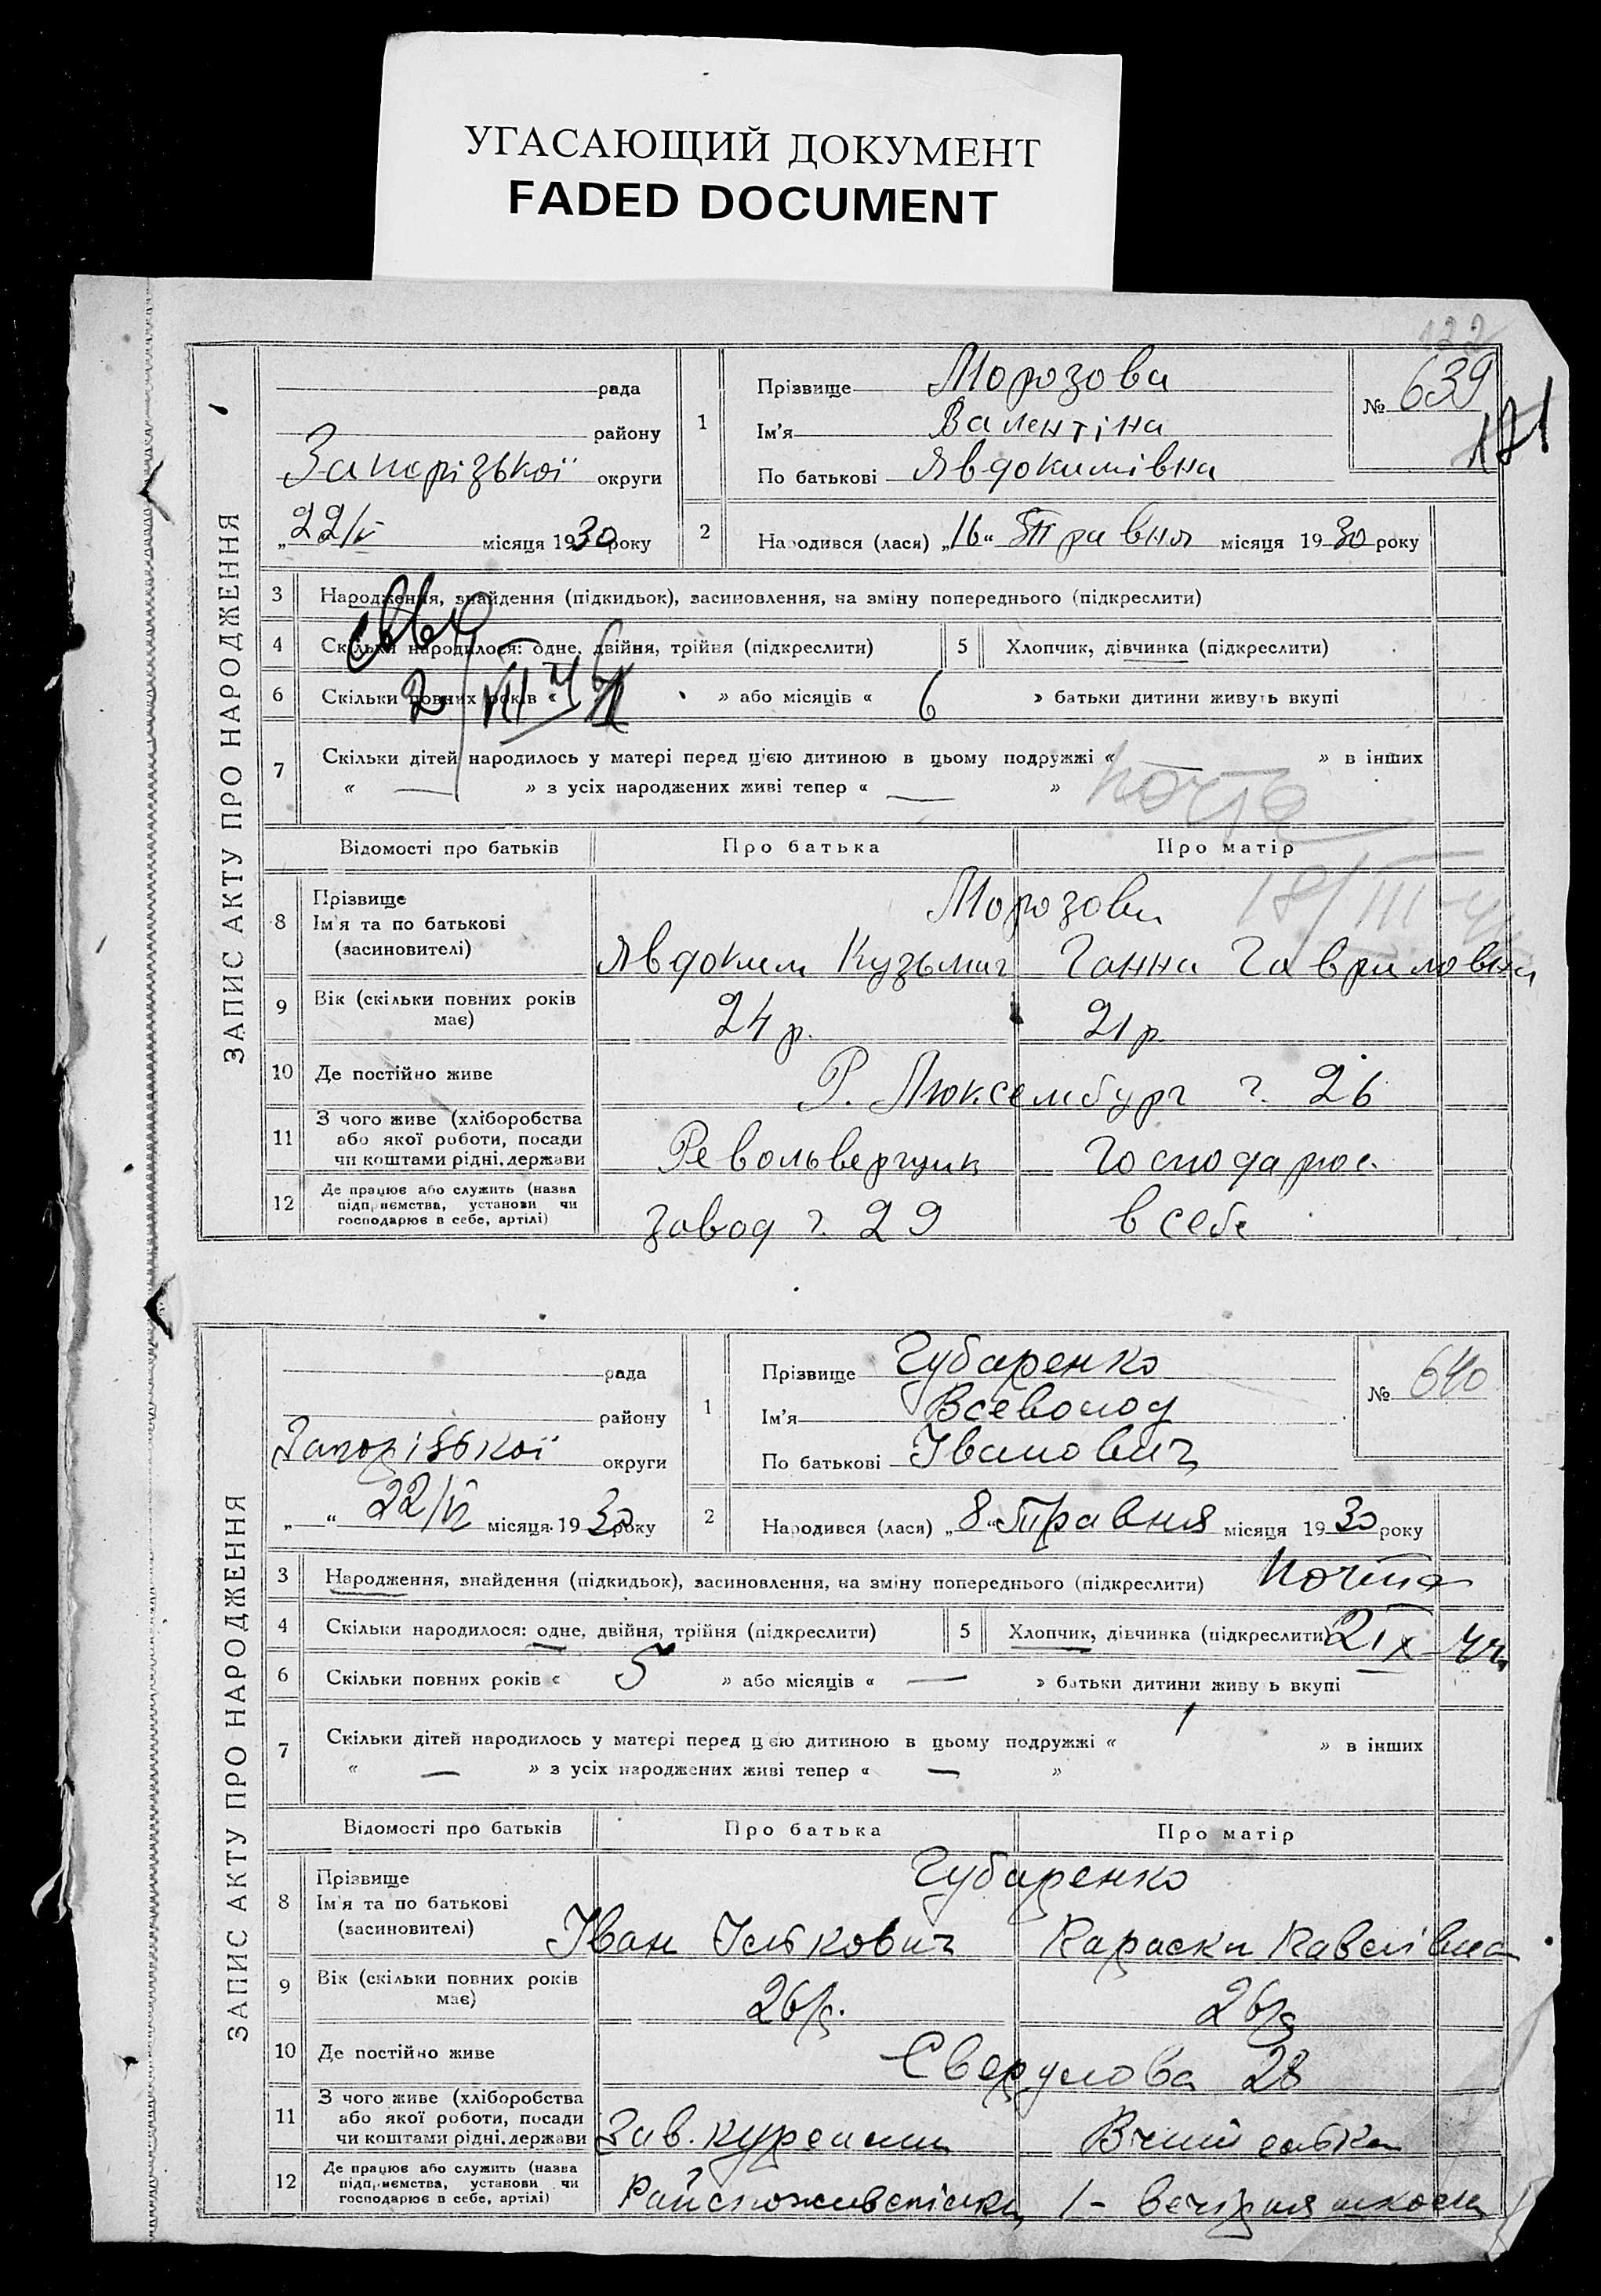 УГАСАЮЩИЙ ДОКУМЕНТ
FADED DOCUMENT
122
ЗАПИС АКТУ ПРО НАРОДЖЕННЯ
рада
району
Запорізької округи
„22/V місяця 1930 року
1
Прізвище Морозова
Ім'я Валентіна
По батькові Явдокимівна
№ 639
171
2
Народився (лася) „16“ Травня місяця 1930 року
3 Народження, знайдення (підкидьок), засиновлення, на зміну попереднього (підкреслити)
4 Скільки народилося: одне, двійня, трійня (підкреслити)
5 Хлопчик, дівчинка (підкреслити)
6 Скільки повних років « » або місяців « 6 » батьки дитини живуть вкупі
7 Скільки дітей народилось у матері перед цією дитиною в цьому подружжі « — » в інших
« — » з усіх народжених живі тепер « — »
почта
18/III-44
Відомості про батьків Про батька Про матір
8 Прізвище
Ім'я та по батькові
(засиновителі)
Морозови
Явдоким Кузьмич Ганна Гавриловна
9 Вік (скільки повних років має)
24 р. 21 р.
10 Де постійно живе
Р. Люксембург ч. 26
11 З чого живе (хліборобства
або якої роботи, посади
чи коштами рідні, держави
Револьверщик Господарює.
12 Де працює або служить (назва
підприємства, установи чи
господарює в себе, артілі)
завод ч. 29 в себе
ЗАПИС АКТУ ПРО НАРОДЖЕННЯ
рада
району
Запорізької округи
„—“ 22/V місяця 1930 року
1
Прізвище Губаренко
Ім'я Всеволод
По батькові Іванович
№ 640
2
Народився (лася) „8“ Травня місяця 1930 року
3 Народження, знайдення (підкидьок), засиновлення, на зміну попереднього (підкреслити)
почта
4 Скільки народилося: одне, двійня, трійня (підкреслити)
5 Хлопчик, дівчинка (підкреслити)
6 Скільки повних років « 5 » або місяців « — » батьки дитини живуть вкупі
7 Скільки дітей народилось у матері перед цією дитиною в цьому подружжі « 1 » в інших
« — » з усіх народжених живі тепер « — »
Відомості про батьків Про батька Про матір
8 Прізвище
Ім'я та по батькові
(засиновителі)
Губаренко
Іван Параска Павлівна
9 Вік (скільки повних років має)
26 р. 26 р.
10 Де постійно живе
Свердлова 28
11 З чого живе (хліборобства
або якої роботи, посади
чи коштами рідні, держави
Зав. курсами Вчителька
12 Де працює або служить (назва
підприємства, установи чи
господарює в себе, артілі)
Райспоживспілки 1 – вечірня школа